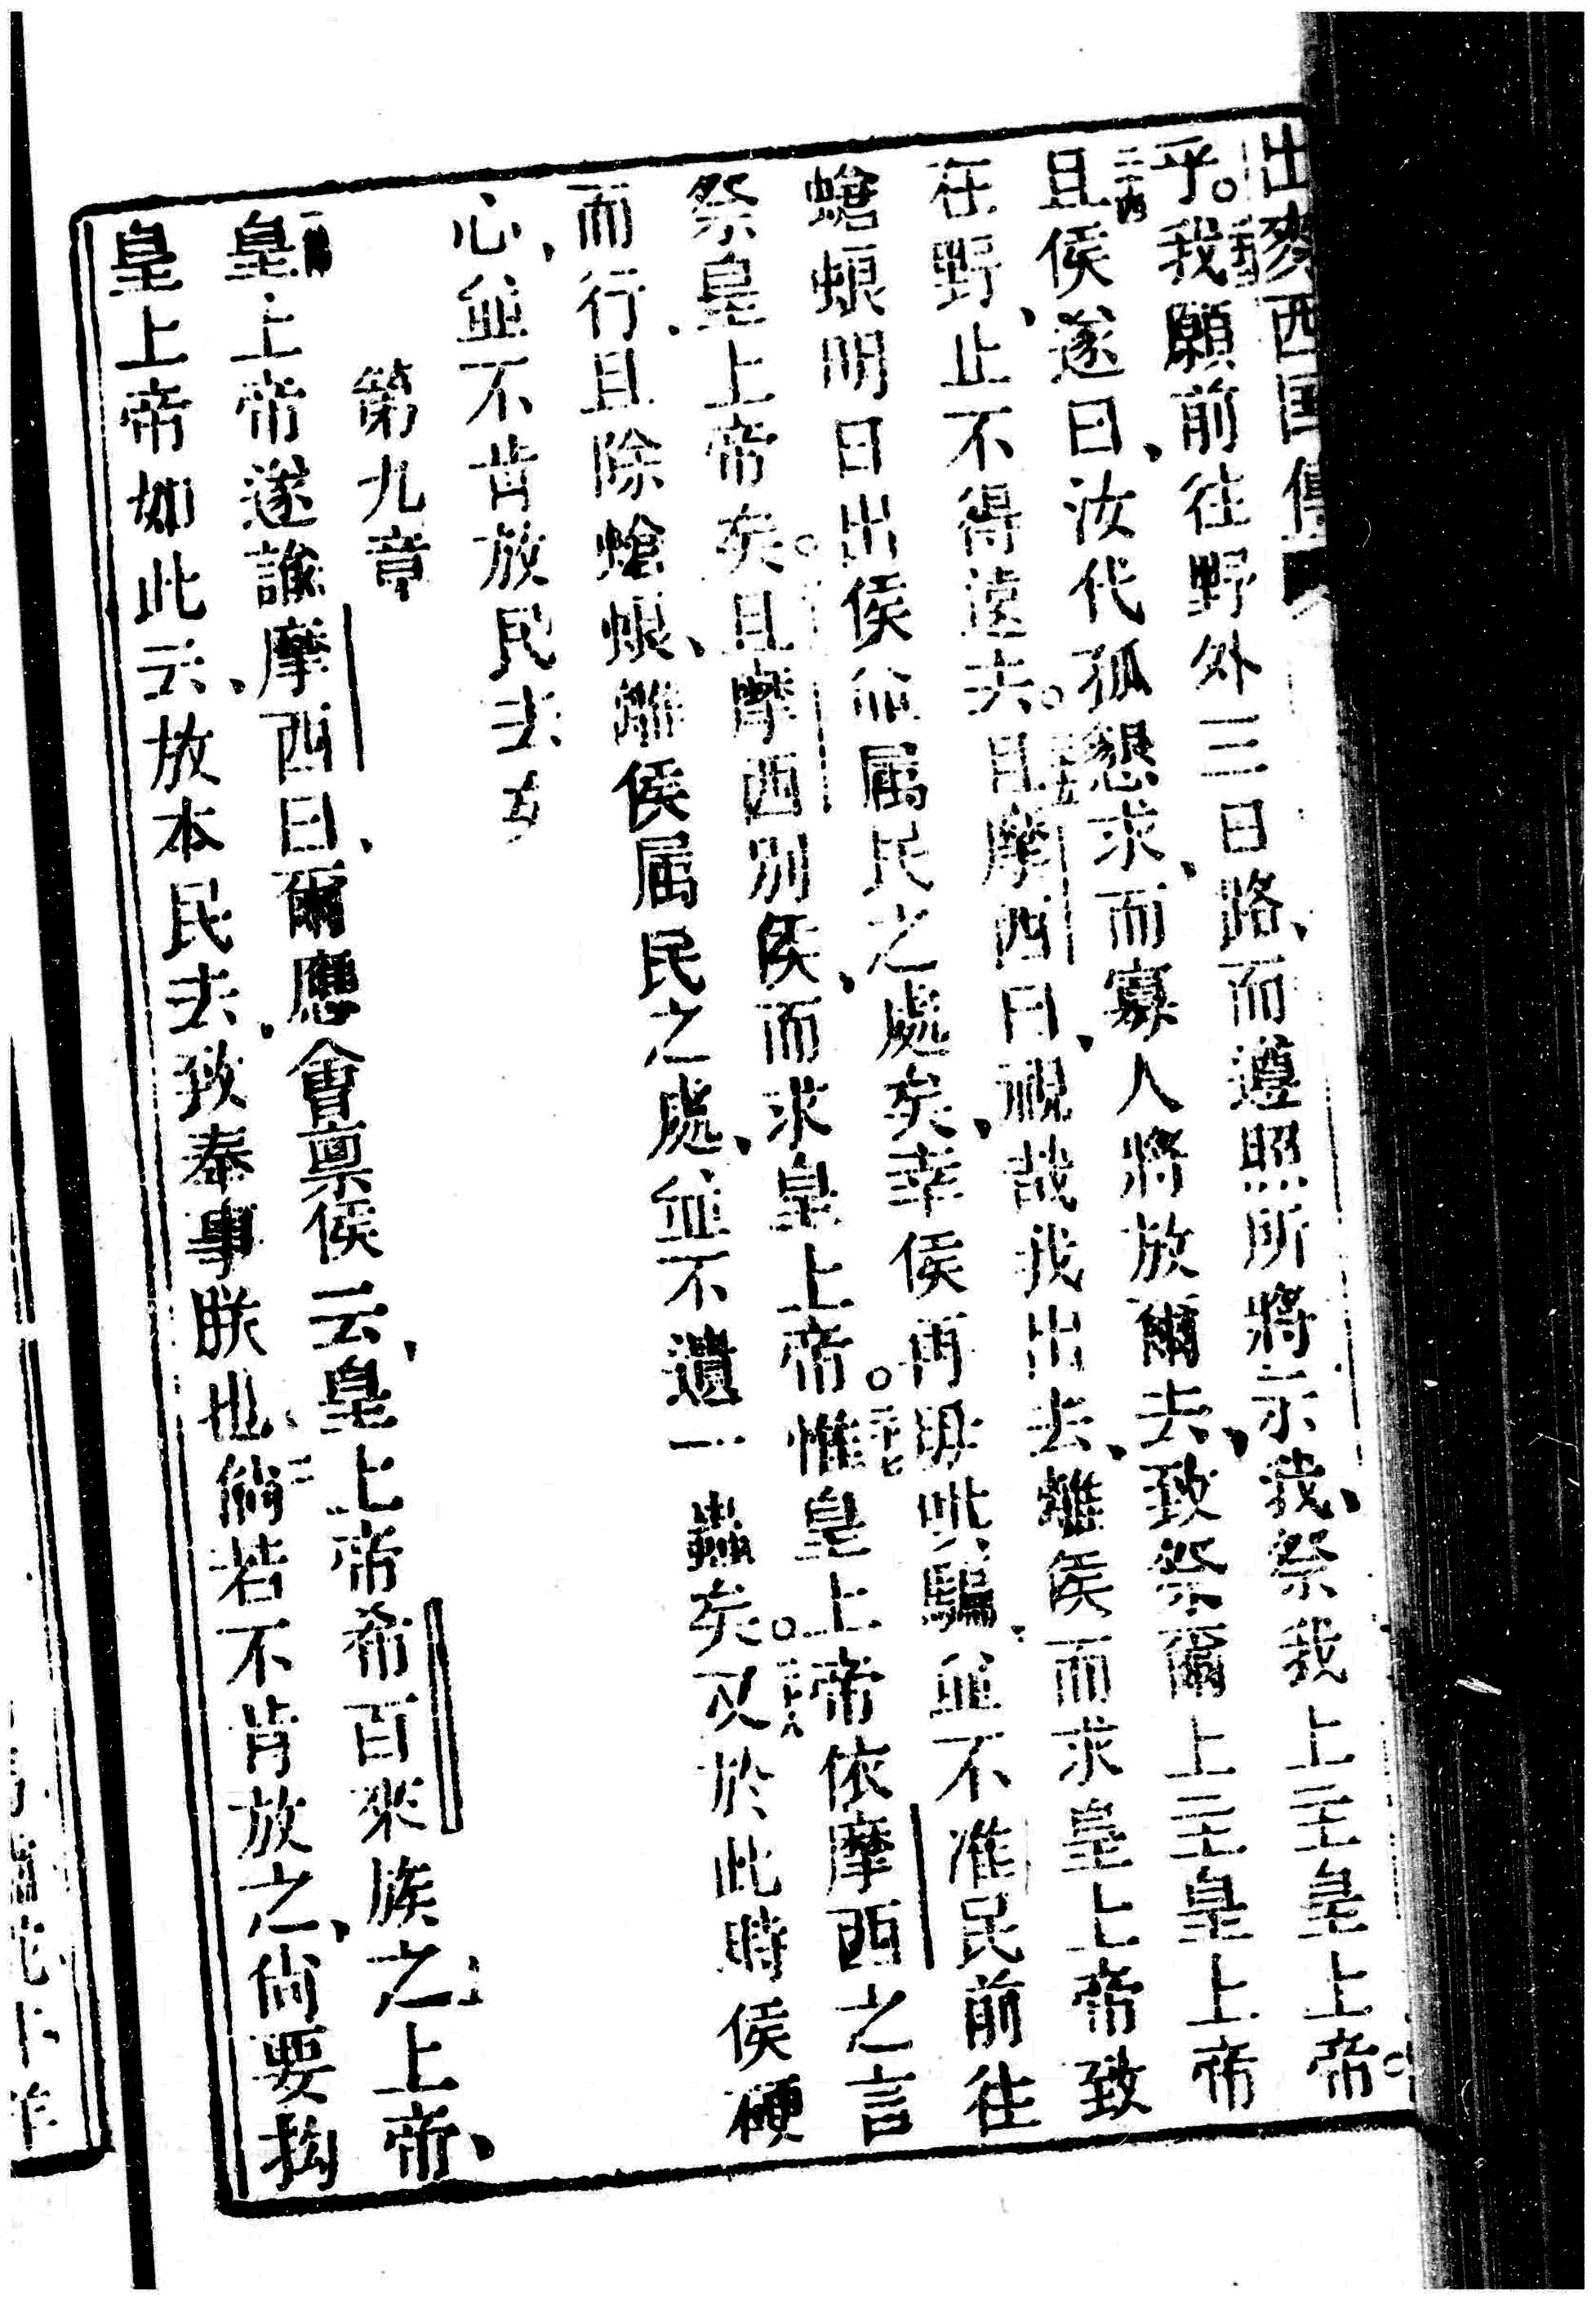 乎。我願前往野外三日路、而遵照所將示我、祭我上主皇上帝。
且侯遂曰、汝代孤懇求、而寡人將放爾去、致祭爾上主皇上帝
在野、止不得遠去。且摩西曰、視哉我出去、離侯而求皇上帝致
蟾蜋明日出侯並属民之處矣、幸侯再毋哄騙、並不准民前往
祭皇上帝矣。且摩西別侯、而求皇上帝。惟皇上帝依摩西之言
而行、且除蟾蜋、離侯属民之處、並不遺一蟲矣。又於此時侯硬
心、並不肯放民去矣
第九章
皇上帝遂諭摩西曰、爾應會稟侯云、皇上帝希百來族之上帝、
皇上帝如此云、放本民去、致奉事朕也、倘若不肯放之、尚要拘